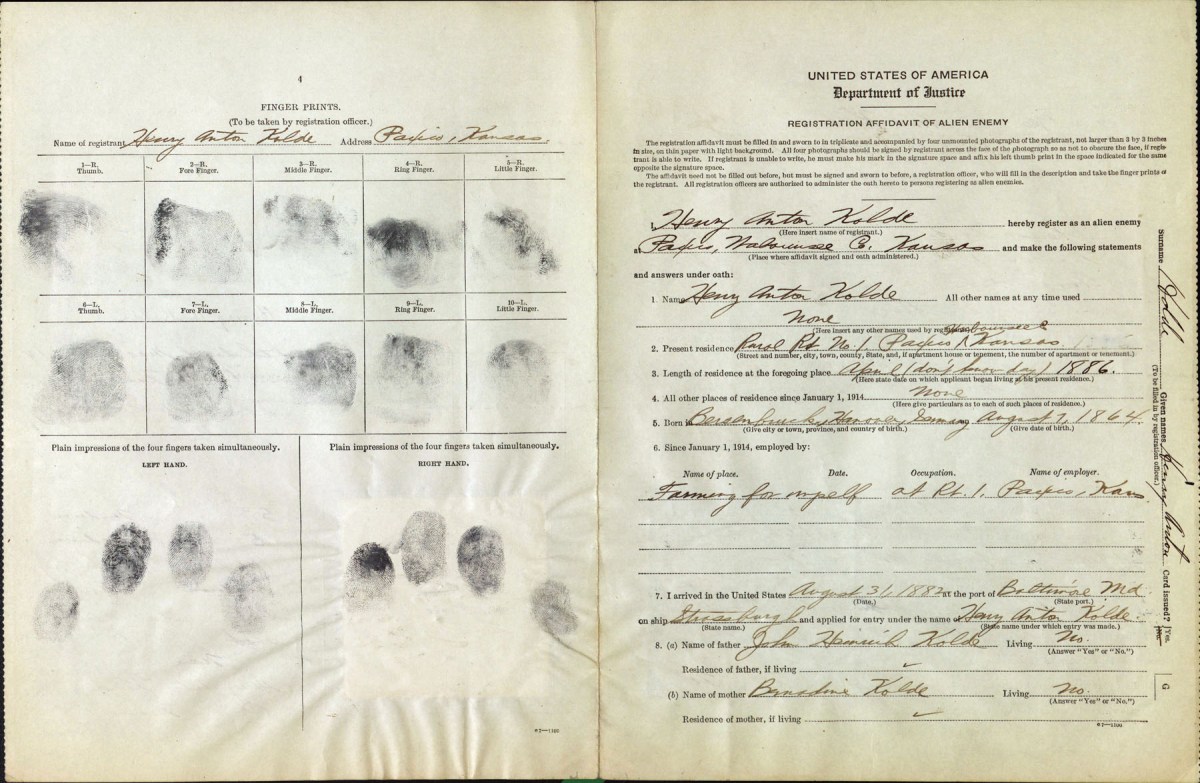 4
FINGER PRINTS.
(To be taken by registration officer.)
Name of registrant Henry Anton Kolde Address Paxico, Kansas.
1—R. Thumb. 2—R. Fore Finger. 3—R. Middle Finger. 4—R. Ring Finger. 5—R. Little Finger.
6—L. Thumb. 7—L. Fore Finger. 8—L. Middle Finger. 9—L. Ring Finger. 10—L. Little Finger.
Plain impressions of the four fingers taken simultaneously.
LEFT HAND.
Plain impressions of the four fingers taken simultaneously.
RIGHT HAND.
UNITED STATES OF AMERICA
Department of Justice
REGISTRATION AFFIDAVIT OF ALIEN ENEMY
The registration affidavit must be filled in and sworn to in triplicate and accompanied by four unmounted photographs of the registrant, not larger than 3 by 3 inches
in size, on thin paper with light background. All four photographs should be signed by registrant across the face of the photograph so as not to obscure the face, if regis-
trant is able to write. If registrant is unable to write, he must make his mark in the signature space and affix his left thumb print in the space indicated for the same
opposite the signature space.
The affidavit need not be filled out before, but must be signed and sworn to before, a registration officer, who will fill in the description and take the finger prints of
the registrant. All registration officers are authorized to administer the oath hereto to persons registering as alien enemies.
I, Henry Anton Kolde hereby register as an alien enemy
(Here insert name of registrant.)
at Paxico, Wabaunsee Co. Kansas and make the following statements
(Place where affidavit signed and oath administered.)
and answers under oath:
1. Name Henry Anton Kolde All other names at any time used
None
(Here insert any other names used by registrant.)
Wabaunsee
2. Present residence Rural Rt. No. 1. Paxico, Kansas
(Street and number, city, town, county, State, and, if apartment house or tenement, the number of apartment or tenement.)
3. Length of residence at the foregoing place April (don't know day) 1886.
(Here state date on which applicant began living at his present residence.)
4. All other places of residence since January 1, 1914 None
(Here give particulars as to each of such places of residence.)
5. Born in Bersenbruck, Hanover, Germany August 7, 1864.
(Give city or town, province, and country of birth.) (Give date of birth.)
6. Since January 1, 1914, employed by:
Name of place. Date. Occupation. Name of employer.
Farming for myself at Rt. 1. Paxico, Kans.
7. I arrived in the United States August 31, 1882 at the port of Baltimore Md.
(Date.) (State port.)
on ship Strassburgh and applied for entry under the name Henry Anton Kolde.
(State name.) (State name under which entry was made.)
8. (a) Name of father John Heinrich Kolde Living No.
(Answer "Yes" or "No.")
Residence of father, if living
(b) Name of mother Bernadine Kolde Living no.
(Answer "Yes" or "No.")
Residence of mother, if living
Surname Kolde Given names Henry Anton Card issued? Yes. No.
(To be filled in by registration officer.)
G